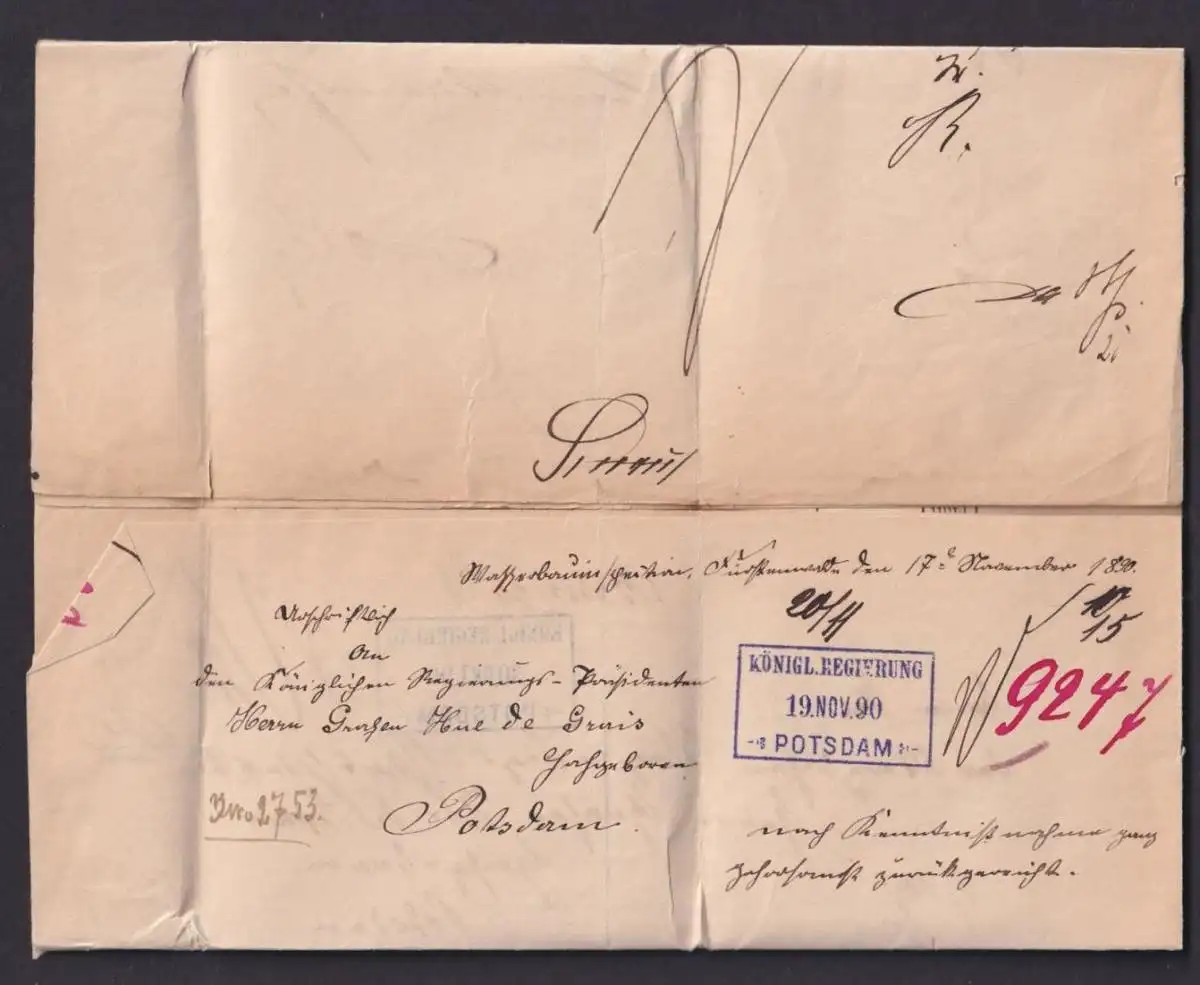 R.
Wasserbauinspection, Fürstenwalde den 17t November 1890.
20/11
Urschriftlich
An
den Königlichen Regierungs-Präsidenten
Herrn Grafen Hue de Grais
Hochgeboren
Potsdam.
KÖNIGL. REGIERUNG
19.NOV.90
POTSDAM
9247
2753.
nach Kenntnißnahme ganz
gehorsamst zurückgereicht.